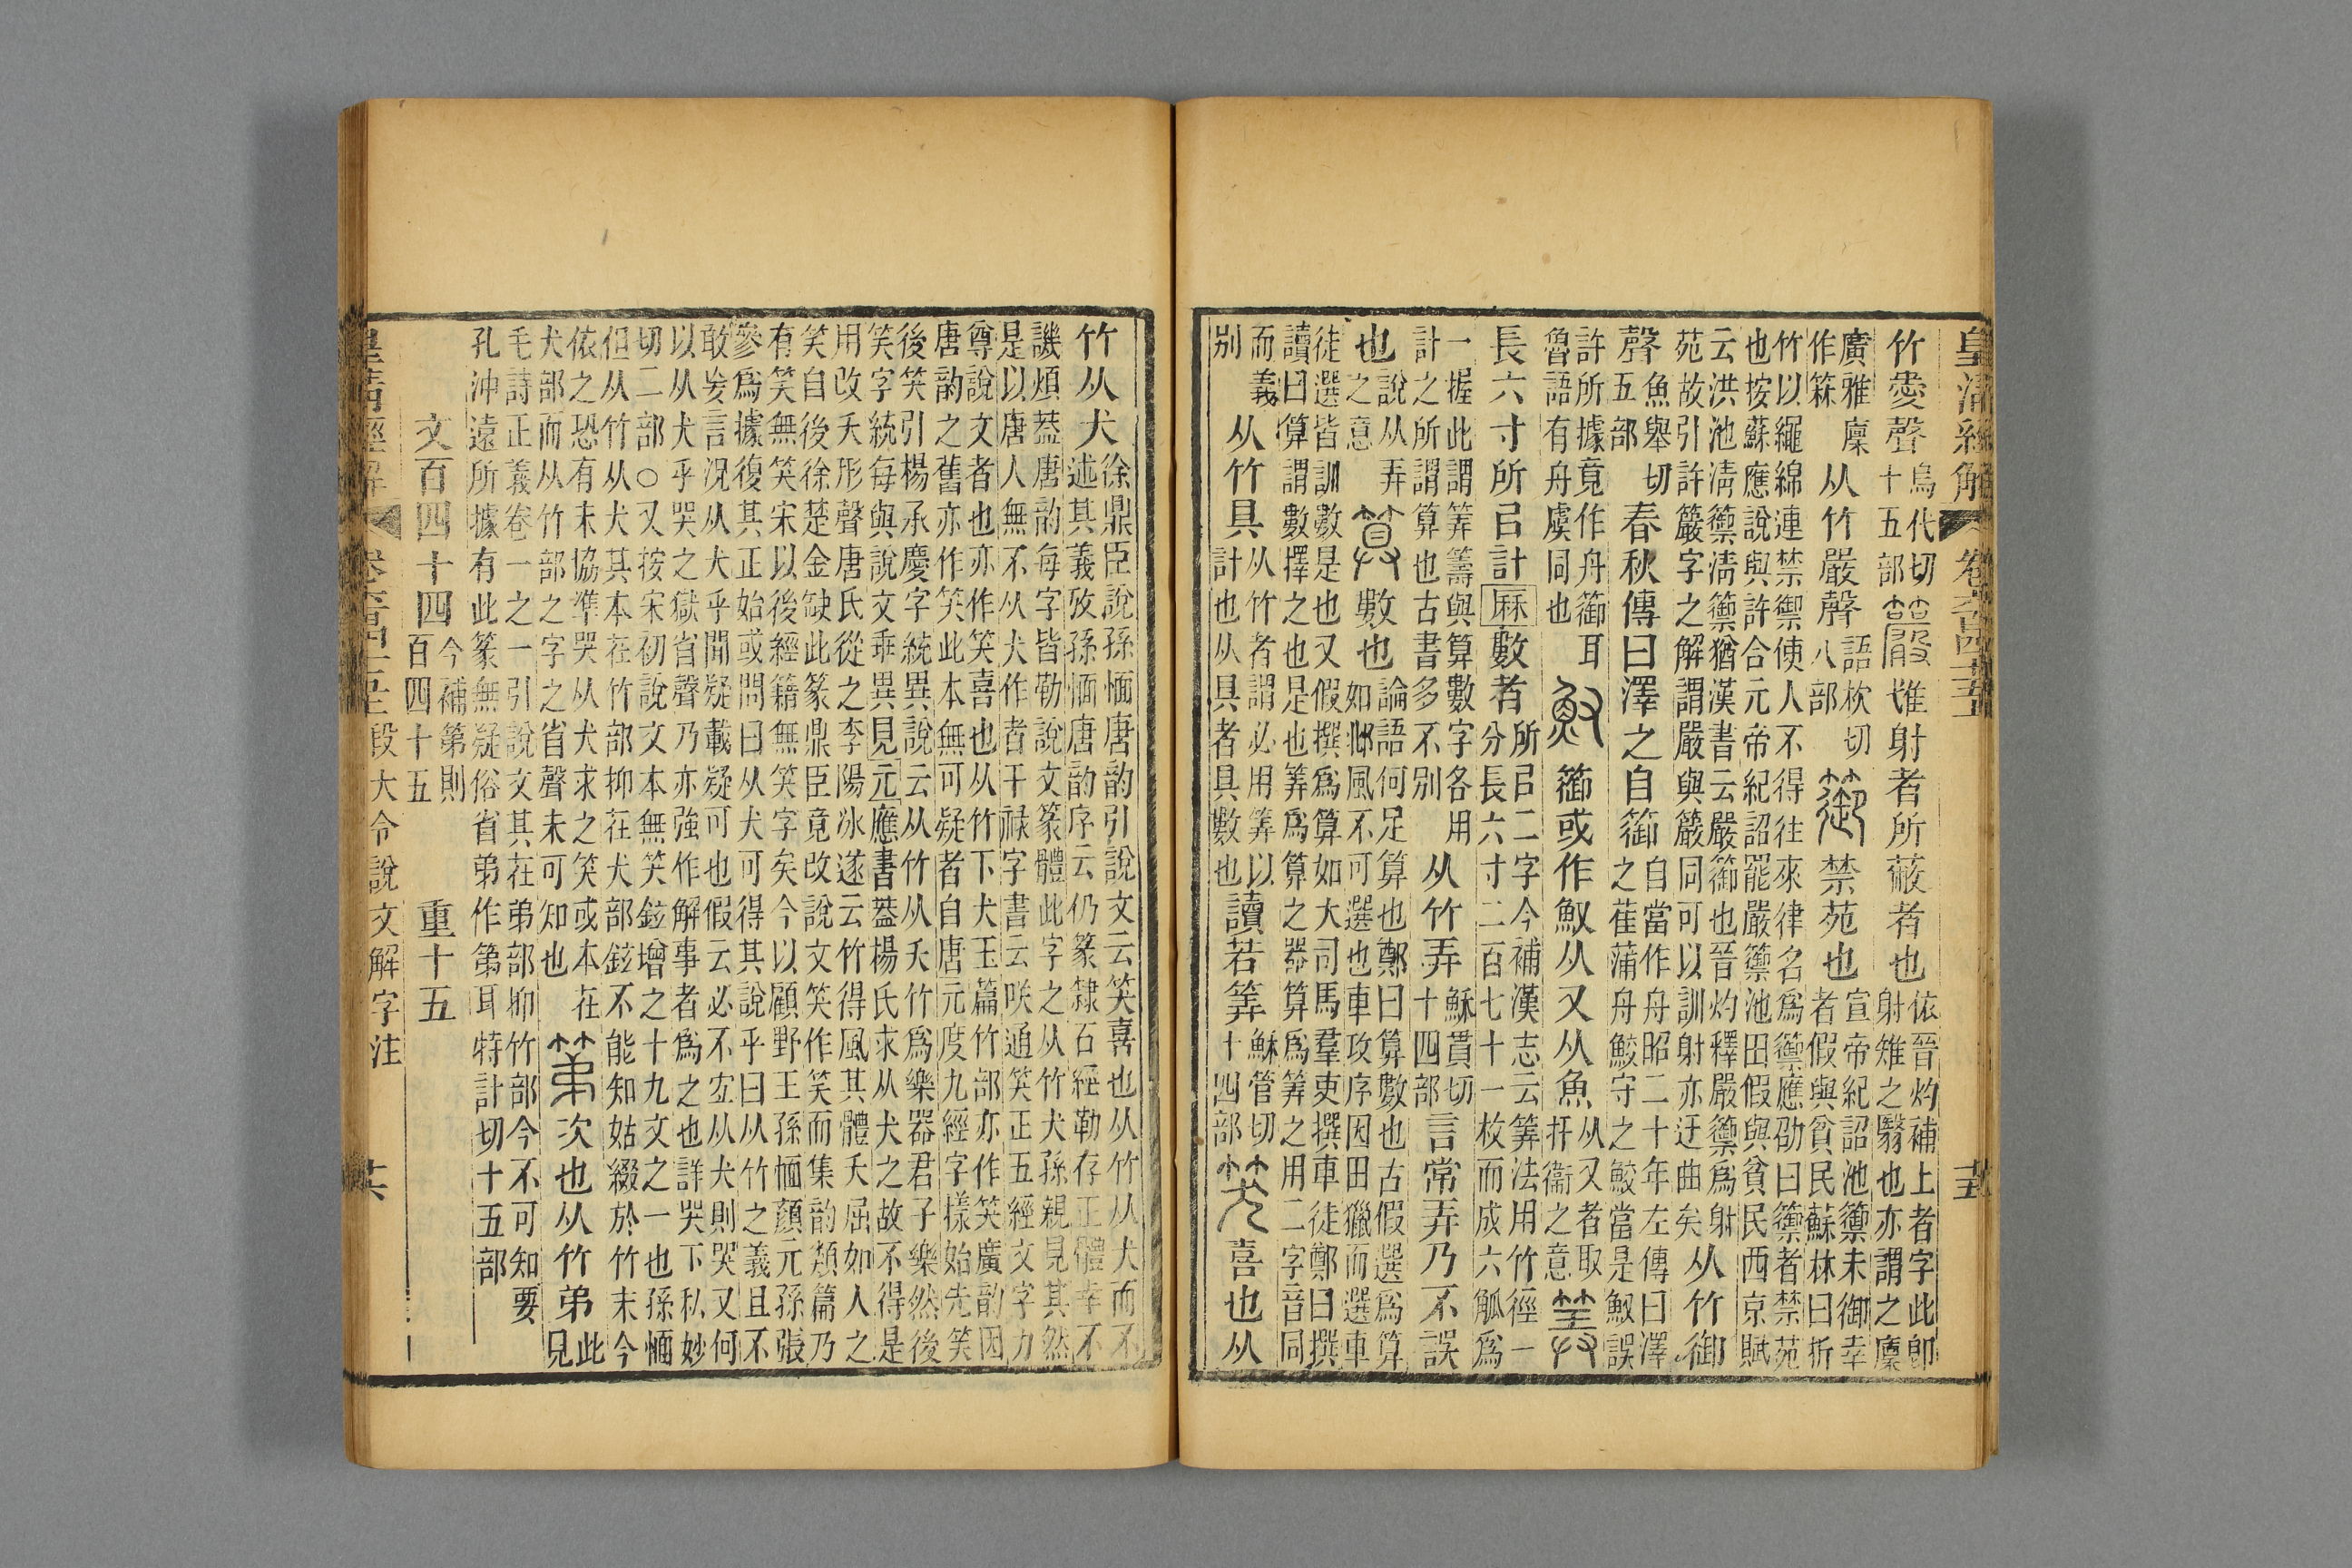 皇清經解 卷六百四十五 卄五
竹愛聲 烏代切 十五部 䉷 雉射者所蔽者也 依晉灼補上者字此卽 射雉之翳也亦謂之廩
廣雅廩 作箖 从竹嚴聲 語杴切 八部 篽 禁苑也 宣帝紀詔池籞未御幸 者假與貧民蘇林曰折
竹以繩綿連禁禦使人不得往來律名爲籞應劭曰籞者禁苑
也按蘇應說與許合元帝紀詔罷嚴籞池田假與貧民西京賦
云洪池淸籞淸籞猶漢書云嚴篽也晉灼釋嚴籞爲射
苑故引許䉷字之解謂嚴與䉷同可以訓射亦迂曲矣 从竹御
聲 魚舉切 五部 春秋傳曰澤之自篽 自當作舟昭二十年左傳曰澤 之萑蒲舟鮫守之鮫當是䱷誤
許所據竟作舟篽耳 魯語有舟虞同也 䱷 篽或作䱷从又从魚 从又者取 扞衞之意 筭
長六寸所㠯計厤數者 所㠯二字今補漢志云筭法用竹徑一 分長六寸二百七十一枚而成六觚爲
一握此謂筭籌與算數字各用 計之所謂算也古書多不別 从竹弄 穌貫切 十四部 言常弄乃不誤
也 說从弄 之意 算 數也 論語何足算也鄭曰算數也古假選爲算 如邶風不可選也車攻序因田獵而選車
徒選皆訓數是也又假撰爲算如大司馬羣吏撰車徒鄭曰撰
讀曰算謂數擇之也是也筭爲算之器算爲筭之用二字音同
而義 別 从竹具 从竹者謂必用筭以 計也从具者具數也 讀若筭 穌管切 十四部 笑 喜也从
竹从犬 徐鼎臣說孫愐唐韵引說文云笑喜也从竹从犬而不 述其義攷孫愐唐韵序云仍篆隸石經勒存正體幸不
譏煩葢唐韵每字皆勒說文篆體此字之从竹犬孫親見其然
是以唐人無不从犬作者干祿字書云咲通笑正五經文字力
尊說文者也亦作笑喜也从竹下犬玉篇竹部亦作笑廣韵因
唐韵之舊亦作笑此本無可疑者自唐元度九經字樣始先笑
後笑引楊承慶字統異說云从竹从夭竹爲樂器君子樂然後
笑字統每與說文乖異見元應書葢楊氏求从犬之故不得是
用改夭形聲唐氏從之李陽冰遂云竹得風其體夭屈如人之
笑自後徐楚金缺此篆鼎臣竟改說文笑作笑而集韵類篇乃
有笑無笑宋以後經籍無笑字矣今以顧野王孫愐顏元孫張
參爲據復其正始或問曰从犬可得其說乎曰从竹之義且不
敢妄言況从犬乎聞疑載疑可也假云必不宐从犬則哭又何
以从犬乎哭之獄省聲乃亦強作解事者爲之也詳哭下私妙
切二部○又按宋初說文本無笑鉉增之十九文之一也孫愐
但从竹从犬其本在竹部抑在犬部鉉不能知姑綴於竹末今
依之恐有未協準哭从犬求之笑或本在
犬部而从竹部之字之省聲未可知也 第 次也从竹弟 此 見
毛詩正義卷一之一引說文其在弟部抑竹部今不可知要
孔沖遠所據有此篆無疑俗省弟作第耳特計切十五部
文百四十四 今補第則 百四十五 重十五
皇淸經解 卷六百四十五 段大令說文解字注 共